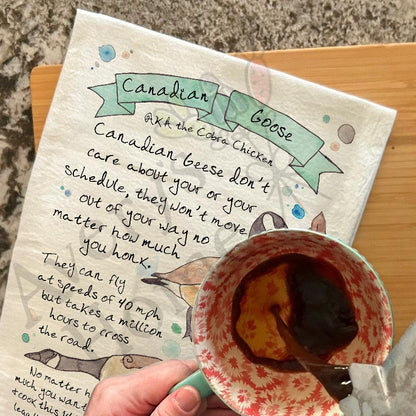 Canadian Goose
AKA the Cobra Chicken
Canadian Geese don't
care about your or your
schedule, they won't move
out of your way no
matter how much
you honk.
They can fly
at speeds of 40 mph
but takes a million
hours to cross
the road.
No matter h
much you want
cook this